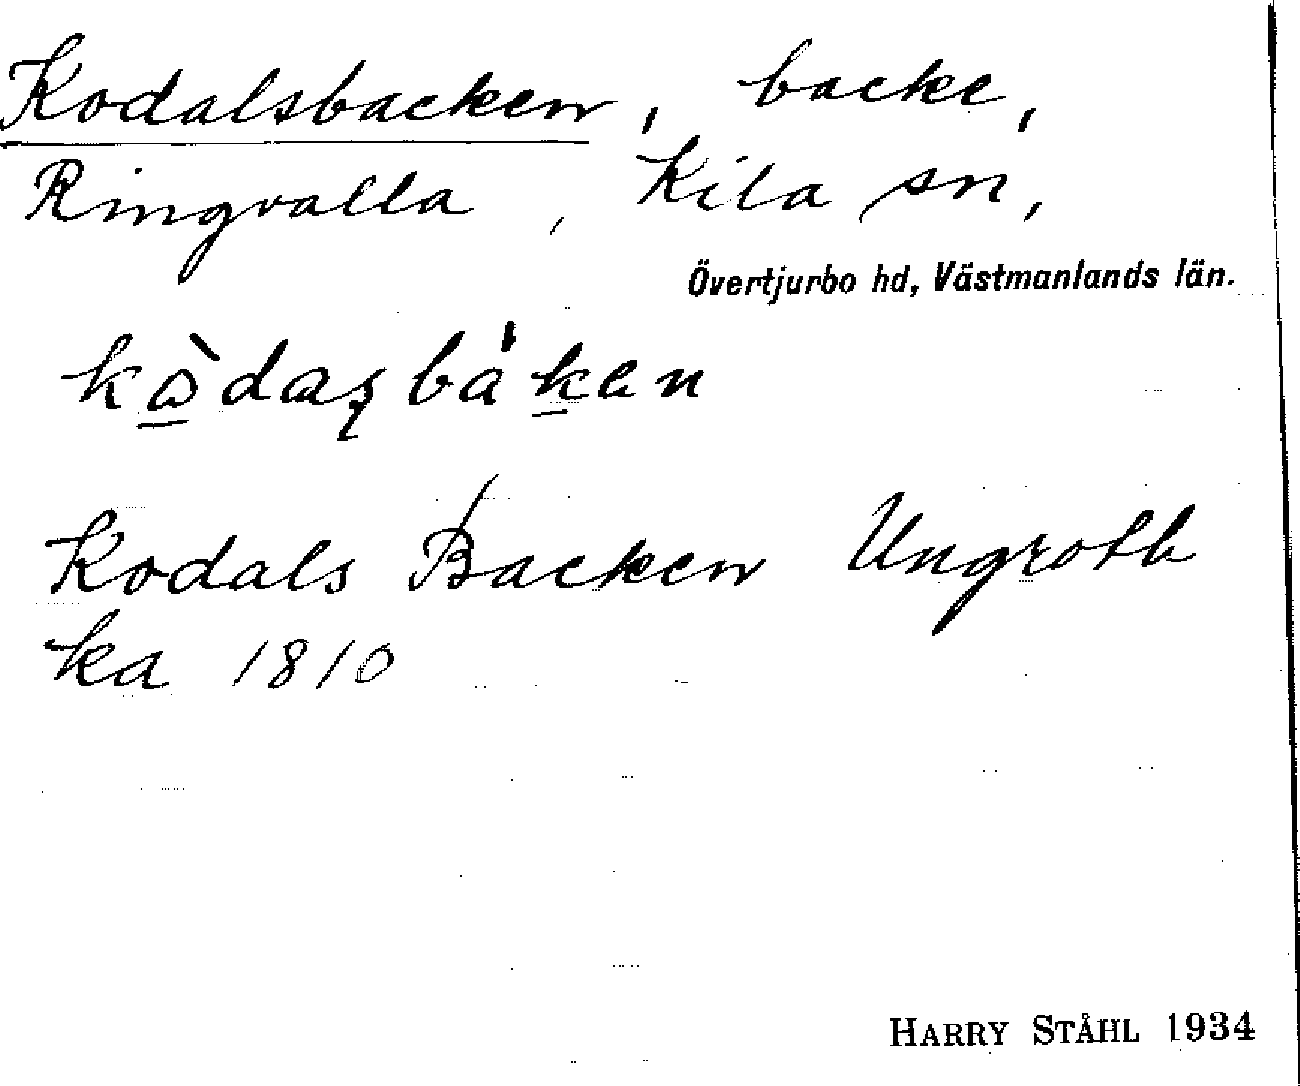 Kodalsbacken, backe,
Ringvalla, Kila sn,
Övertjurbo hd, Västmanlands län.
Kodals Backen Ungroth
ka 1810
HARRY STÅHL 1934